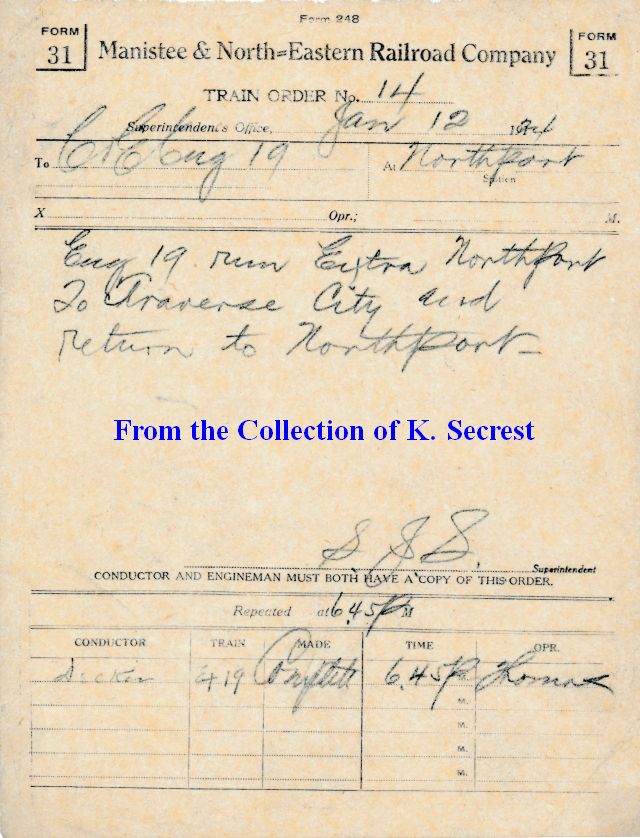 Form 248
FORM 31 Manistee & North=Eastern Railroad Company FORM 31
TRAIN ORDER No. 14
Superintendent's Office, Jan 12 19
To C&E Eng 19 At Northport
Station
X Opr.; M.
Eng 19 run Extra Northport
To Traverse City and
return to Northport
From the Collection of K. Secrest
S.J.S. Superintendent
CONDUCTOR AND ENGINEMAN MUST BOTH HAVE A COPY OF THIS ORDER.
Repeated at 6.45 P M
CONDUCTOR TRAIN MADE TIME OPR.
19 Complete 6.45 P M. Thomas
M.
M.
M.